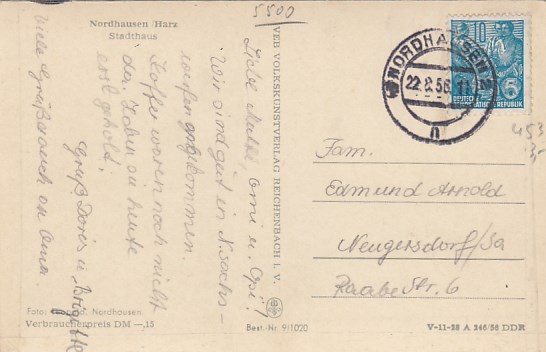 5500
Nordhausen/Harz
Stadthaus
Liebe Mutti, Omi u. Opi!
Wir sind gut in N.sachs-
werfen angekommen.
Koffer waren noch nicht
da, haben sie heute
erst geholt.
Gruß Doris u. Brigitte
Viele Grüße auch an Oma.
VEB VOLKSKUNSTVERLAG REICHENBACH I. V.
Foto: Nordhausen
Verbraucherpreis DM —,15
Best.-Nr. 9/1020
NORDHAUSEN
22.8.56
n
10
5
DEUTSCHE DEMOKRATISCHE REPUBLIK
453
3,-
Fam.
Edmund Arnold
Neugersdorf/Sa
Raabestr. 6
V-11-28 A 246/56 DDR